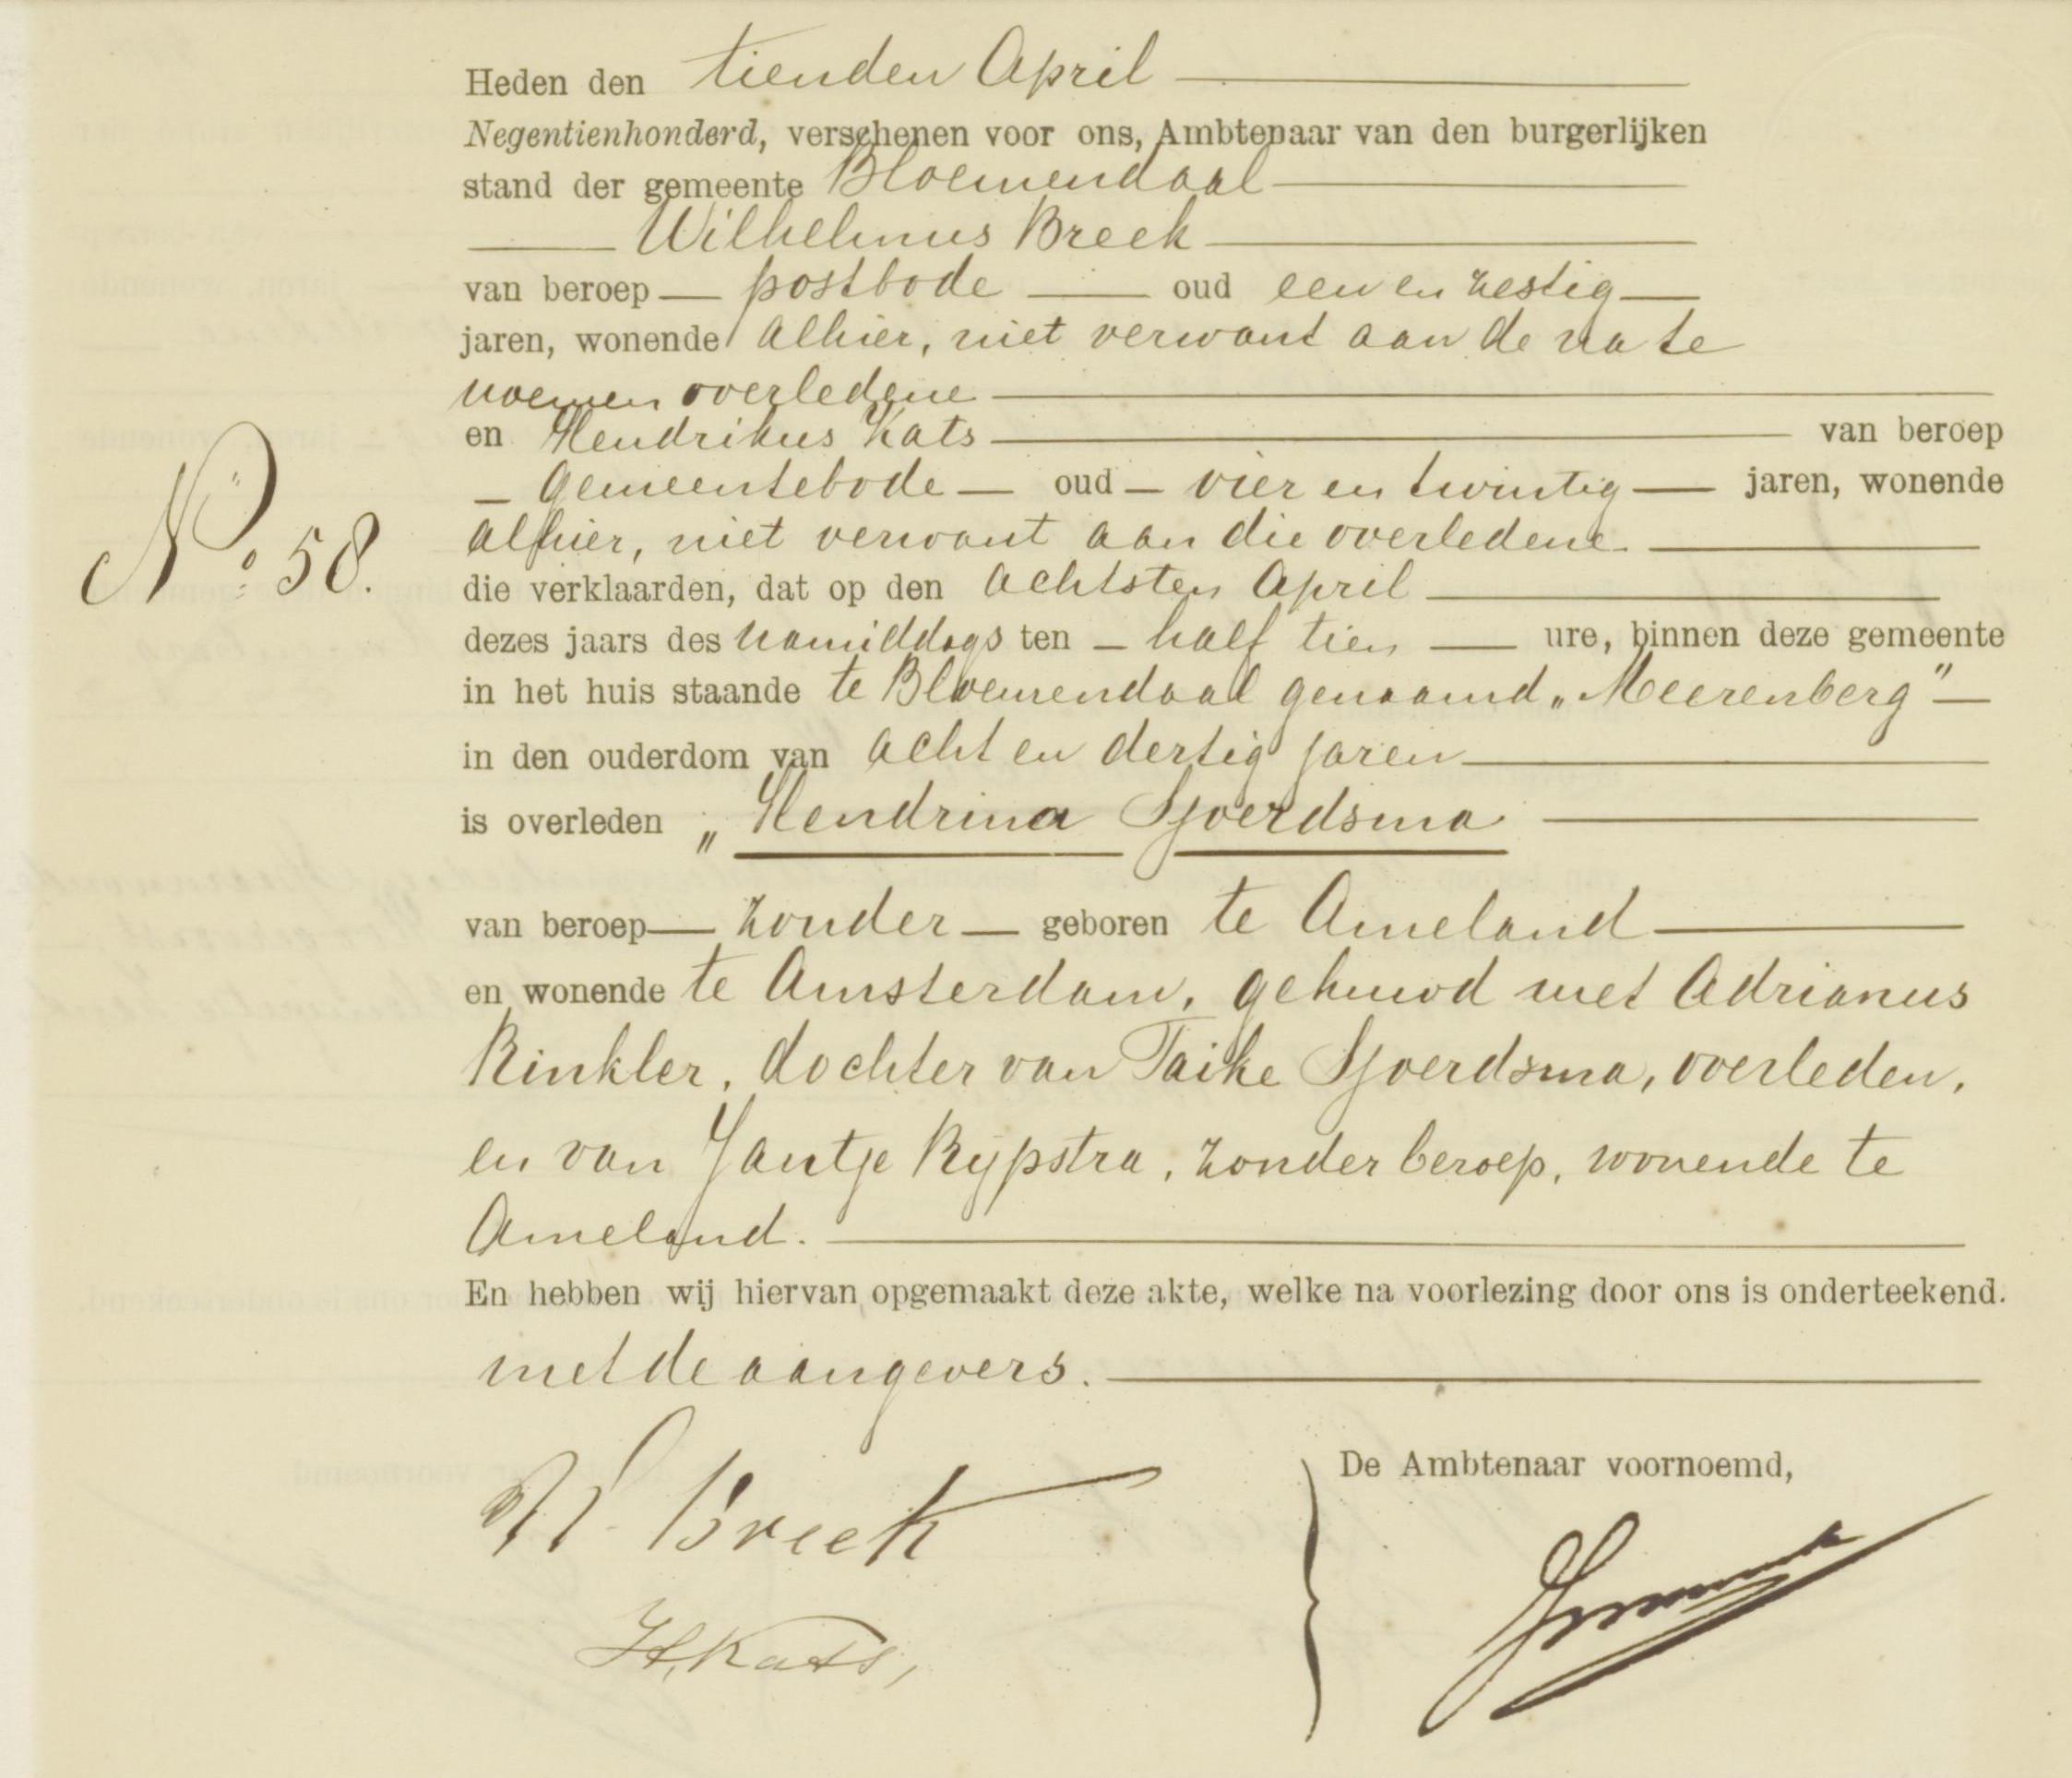 Heden den tienden April
Negentienhonderd, verschenen voor ons, Ambtenaar van den burgerlijken
stand der gemeente Bloemendaal
Wilhelmus Breek
van beroep postbode oud een en zestig
jaren, wonende alhier, niet verwant aan de na te
noemen overledene
en Hendrikus Kats van beroep
gemeentebode oud vier en twintig jaren, wonende
alhier, niet verwant aan die overledene
No: 58.
die verklaarden, dat op den achtsten April
dezes jaars des namiddags ten half tien ure, binnen deze gemeente
in het huis staande te Bloemendaal genaamd „Meerenberg"
in den ouderdom van acht en dertig jaren
is overleden „Hendrina Sjoerdsma
van beroep zonder geboren te Ameland
en wonende te Amsterdam, gehuwd met Adrianus
Rinkler, dochter van Taike Sjoerdsma, overleden,
en van Jantje Rypstra, zonder beroep, wonende te
Ameland.
En hebben wij hiervan opgemaakt deze akte, welke na voorlezing door ons is onderteekend.
met de aangevers.
De Ambtenaar voornoemd,
W. Breek
H. Kats,